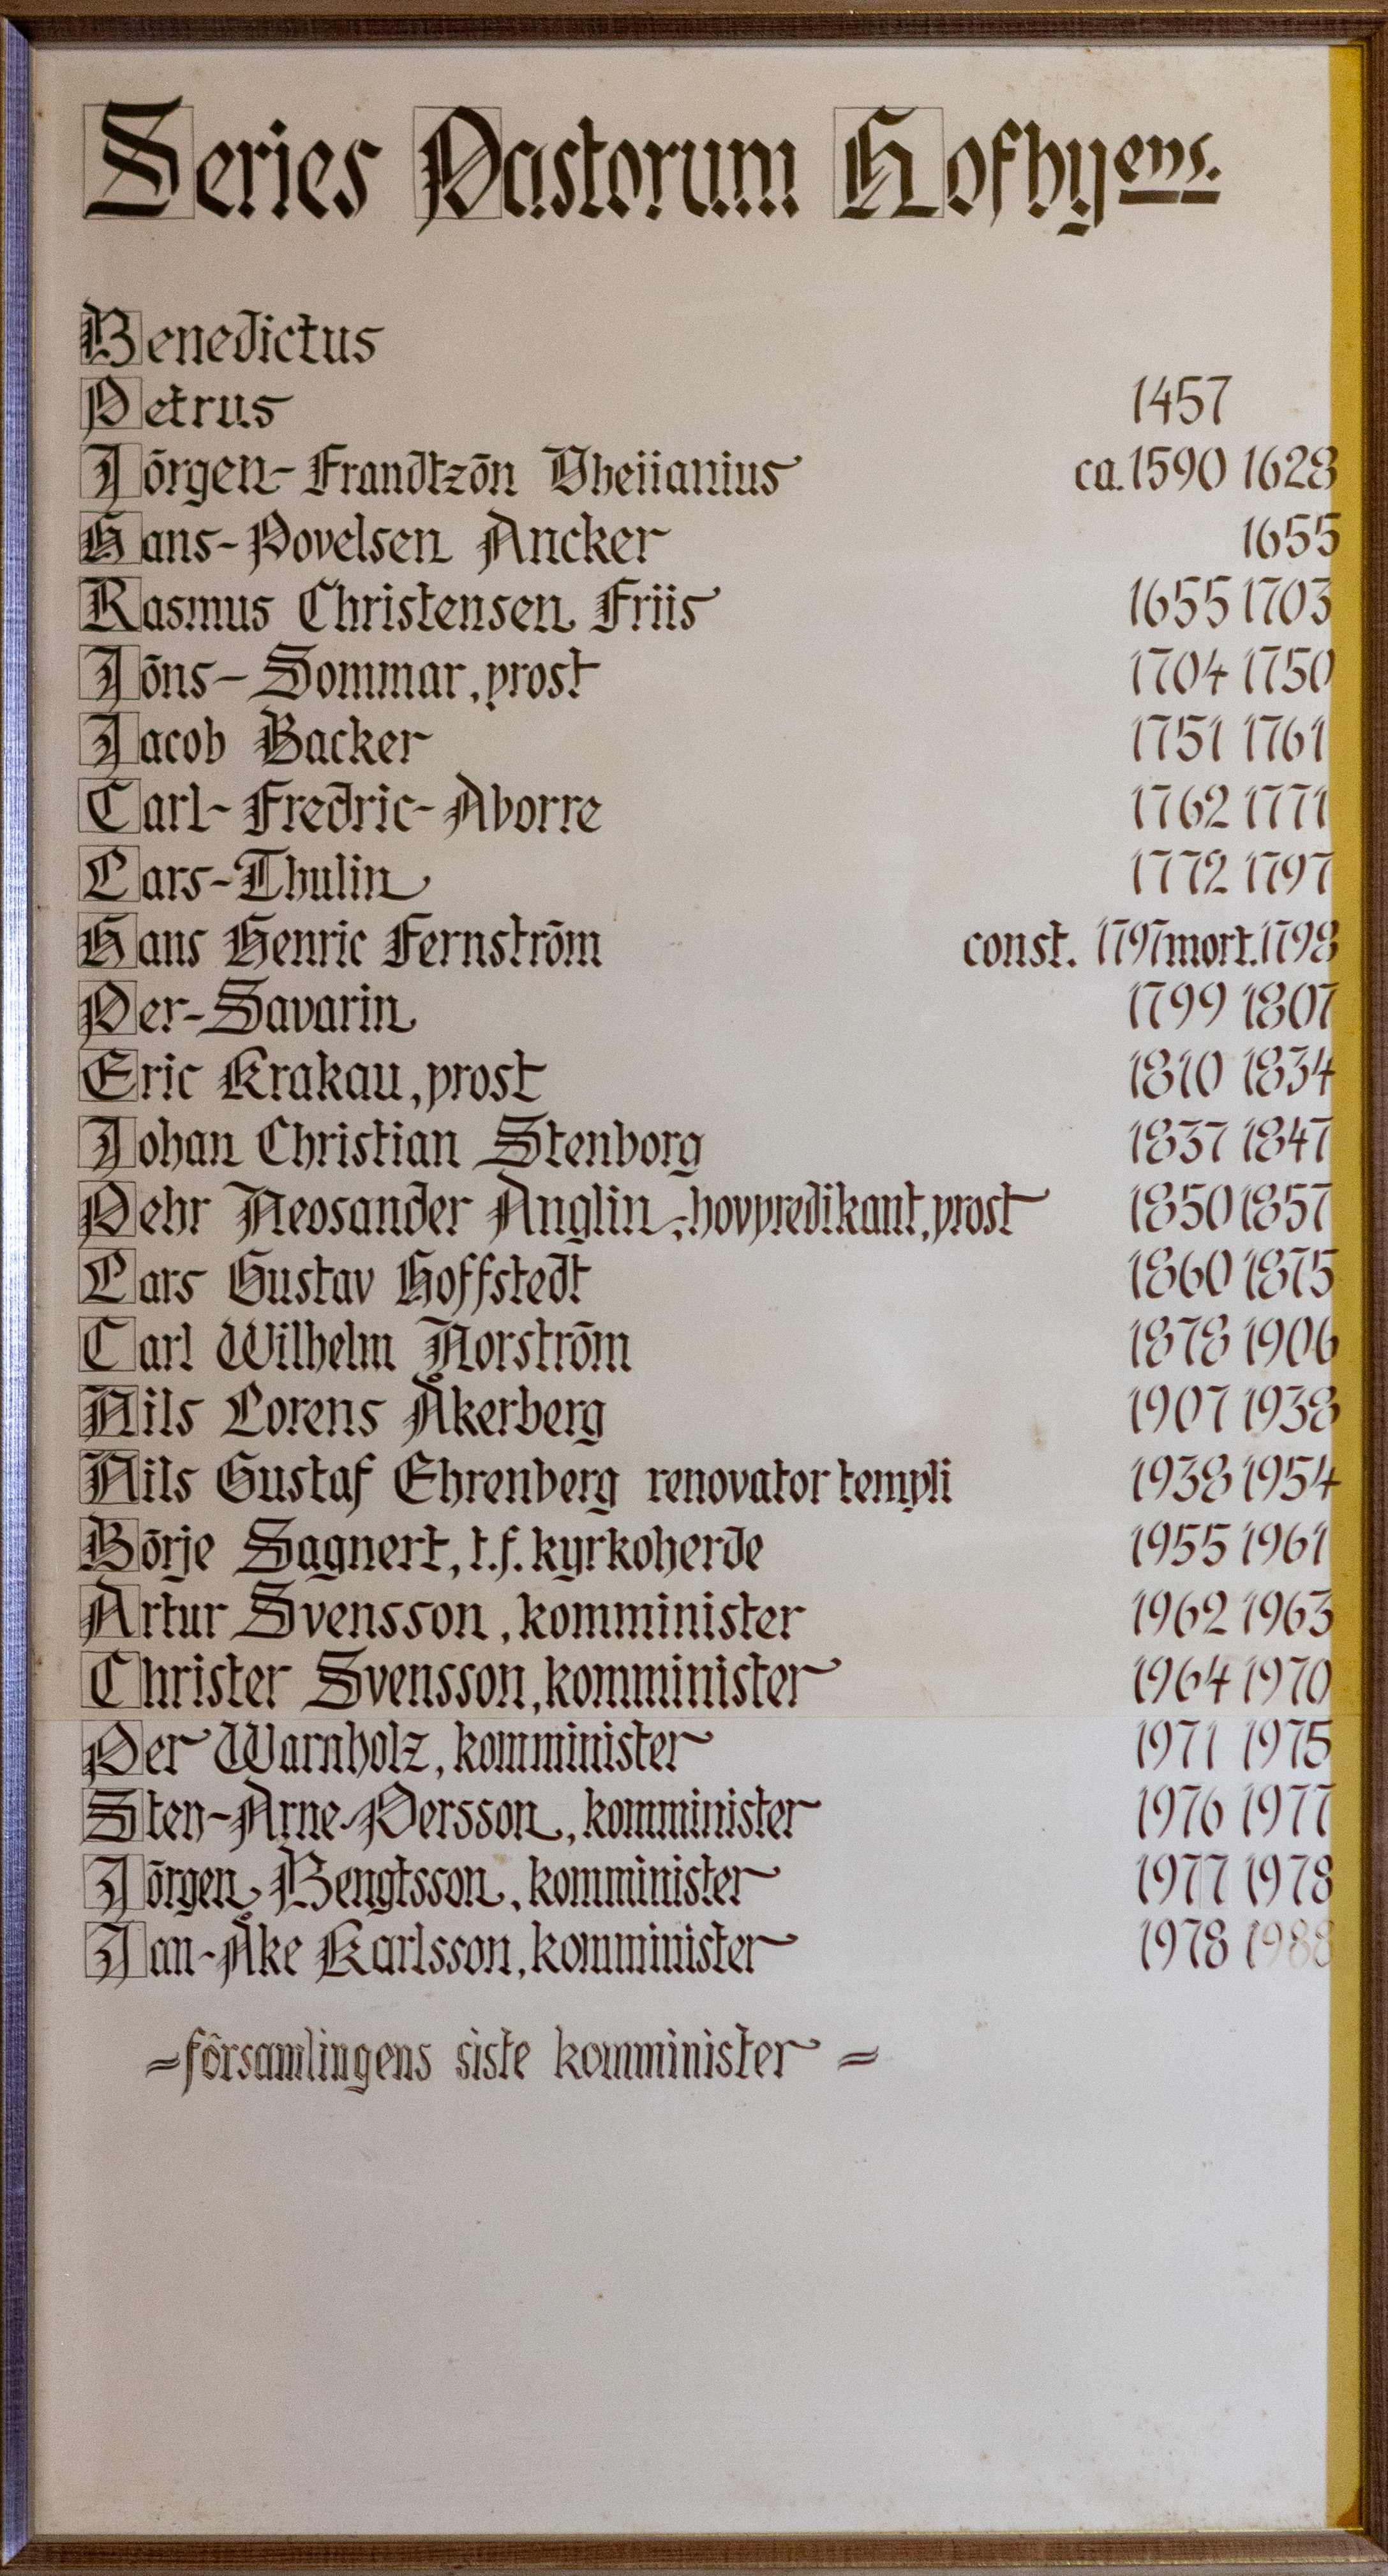 Series Pastorum Hofbyens.
Benedictus
Petrus 1457
Jörgen-Frandtzön Dheiianius ca. 1590 1628
Hans-Povelsen Ancker 1655
Rasmus Christensen Friis 1655 1703
Jöns-Sommar, prost 1704 1750
Jacob Backer 1751 1761
Carl-Fredric-Aborre 1762 1771
Lars-Thulin 1772 1797
Hans Henric Fernström const. 1797 mort. 1798
Per-Savarin 1799 1807
Eric Krakau, prost 1810 1834
Johan Christian Stenborg 1837 1847
Pehr Neosander Anglin, hovpredikant, prost 1850 1857
Lars Gustav Hoffstedt 1860 1875
Carl Wilhelm Norström 1878 1906
Nils Lorens Åkerberg 1907 1938
Nils Gustaf Ehrenberg renovator templi 1938 1954
Börje Sagnert, t.f. kyrkoherde 1955 1961
Artur Svensson, komminister 1962 1963
Christer Svensson, komminister 1964 1970
Per Warnholz, komminister 1971 1975
Sten-Arne-Persson, komminister 1976 1977
Jörgen Bengtsson, komminister 1977 1978
Jan-Åke Karlsson, komminister 1978 1988
=församlingens siste komminister=